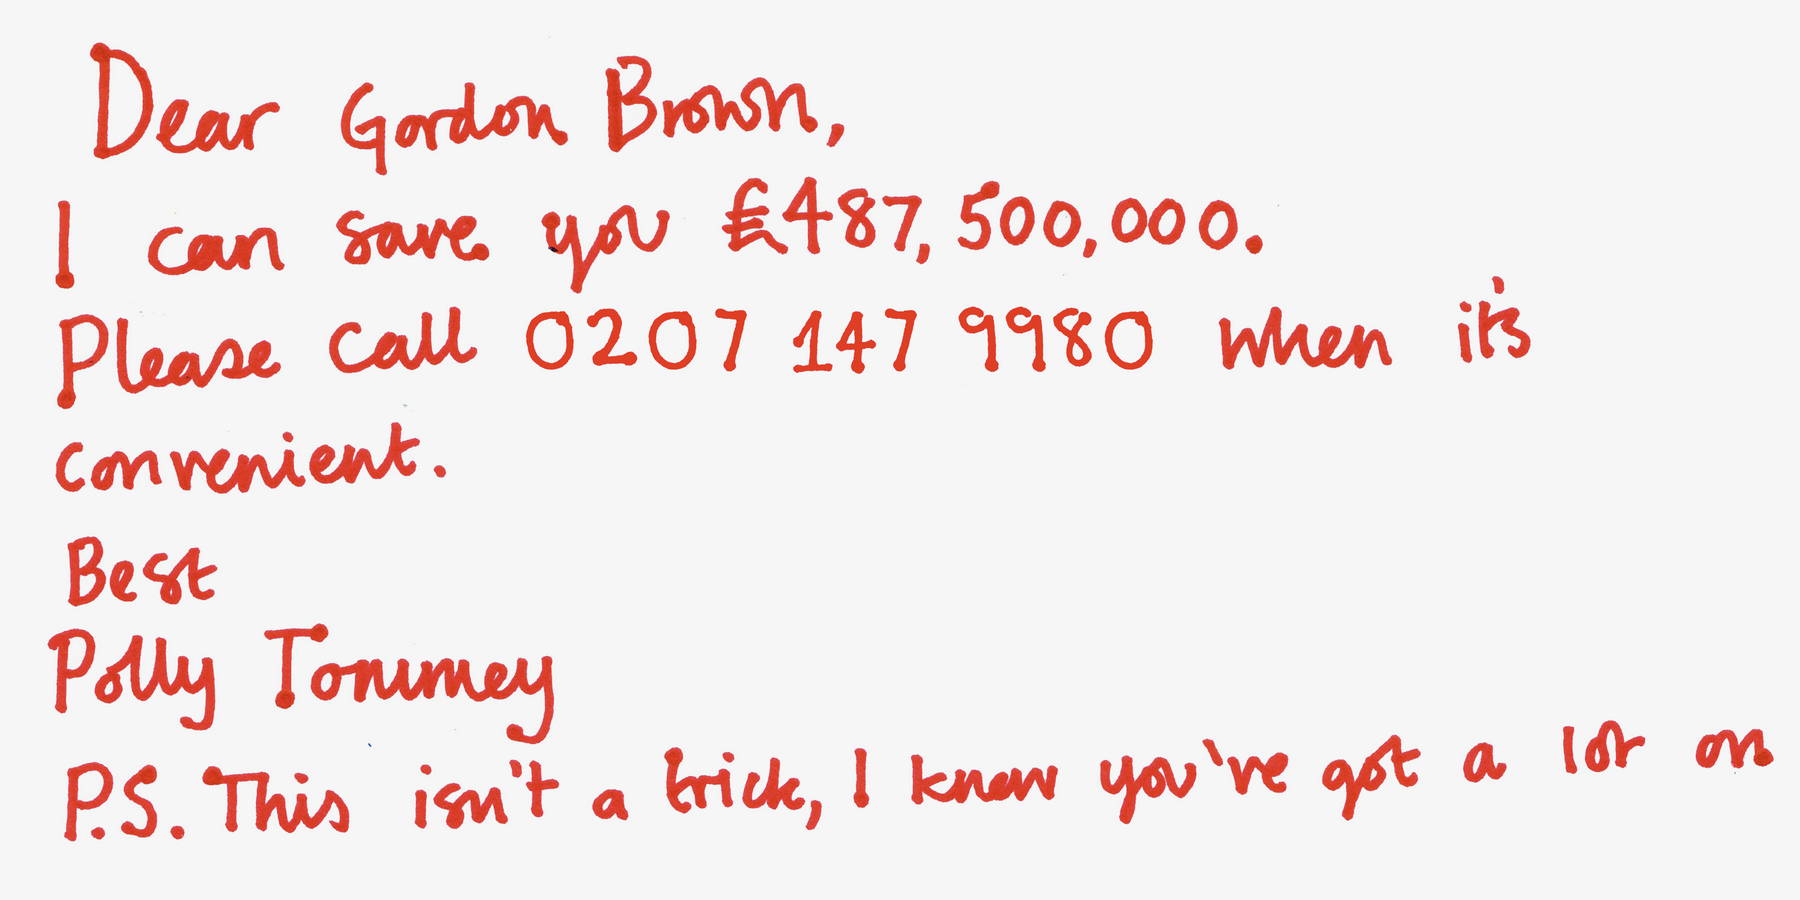 Dear Gordon Brown,
I can save you £487,500,000.
Please call 0207 147 9980 when it's
convenient.
Best
Polly Tommey
P.S. This isn't a trick, I know you've got a lot on